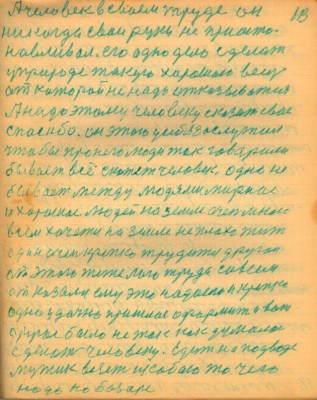 А человек в своем труде он
18
никогда свои рукы не приоста-
навливал. его одно дело сделать
у природе такую хорошею вещ
от которой не надо отказыватся
А надо этому человеку сказат свае
спасибо. он этого у себе заслужил
чтобы про него люди так говорили
бывает всё сможет человек, одно не
бывает между людями мирное
и хорошое людей на земли очен много
всем хочется на земле не плохо жит
один очен крепко трудится другой
от этого тяжелого труда совсем
отказался ему это надоело и крепко
одно удачно пришлос оформит а вот
другое было не так как думалос
сделат человеку. Едит на подводе
мужик везет и собою то. чего
надо на базаре